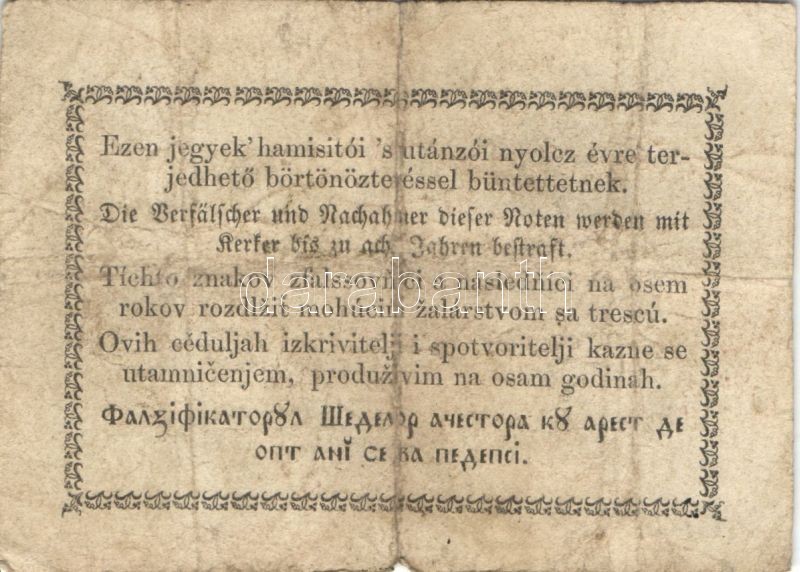 Ezen jegyek' hamisitói 's utánzói nyolcz évre ter-
jedhető börtönöztetéssel büntettetnek.
Die Verfälscher und Nachahmer dieser Noten werden mit
Kerker bis zu acht Jahren bestraft.
Tichto znakov zfalssovňíci a následníci na osem
rokov rozdlžiť mohúcim žalárstvom sa trescú.
Ovih céduljah izkrivitelji i spotvoritelji kazne se
utamničenjem, produživim na osam godinah.
Фалꙁіфікаторꙋл Шеделор ачестора кꙋ арест де
опт анĭ се ва педепсі.
darabanth